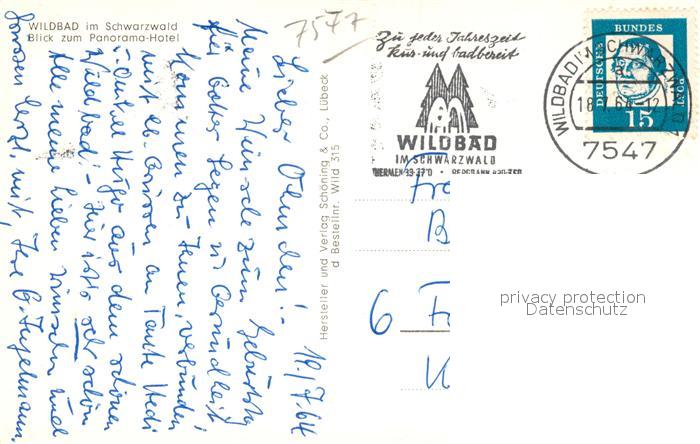 WILDBAD im Schwarzwald
Blick zum Panorama-Hotel
7547
19/7.64
Lieber Ohmchen!-
Meine Wünsche zum Geburtstag
für Gottes Segen u. Gesundheit
kommen zu Ihnen, verbunden
mit lb. Grüssen an Tante Hedi
u. Onkel Hugo aus dem schönen
Wildbad! - Hier ist's sehr schön
Alle meine Lieben wünschen und
grüssen herzl. mit, Ihre
Hersteller und Verlag Schöning & Co., Lübeck
d Bestellnr. Wild 315
Zu jeder Jahreszeit
kur- und badbereit
WILDBAD
IM SCHWARZWALD
THERMEN 33-37°C • BERGBAHN 430-730
WILDBAD I. SCHWARZWALD
a
18.7.64-12
7547
DEUTSCHE
BUNDES
POST
15
Fr
B
6 F
privacy protection
Datenschutz